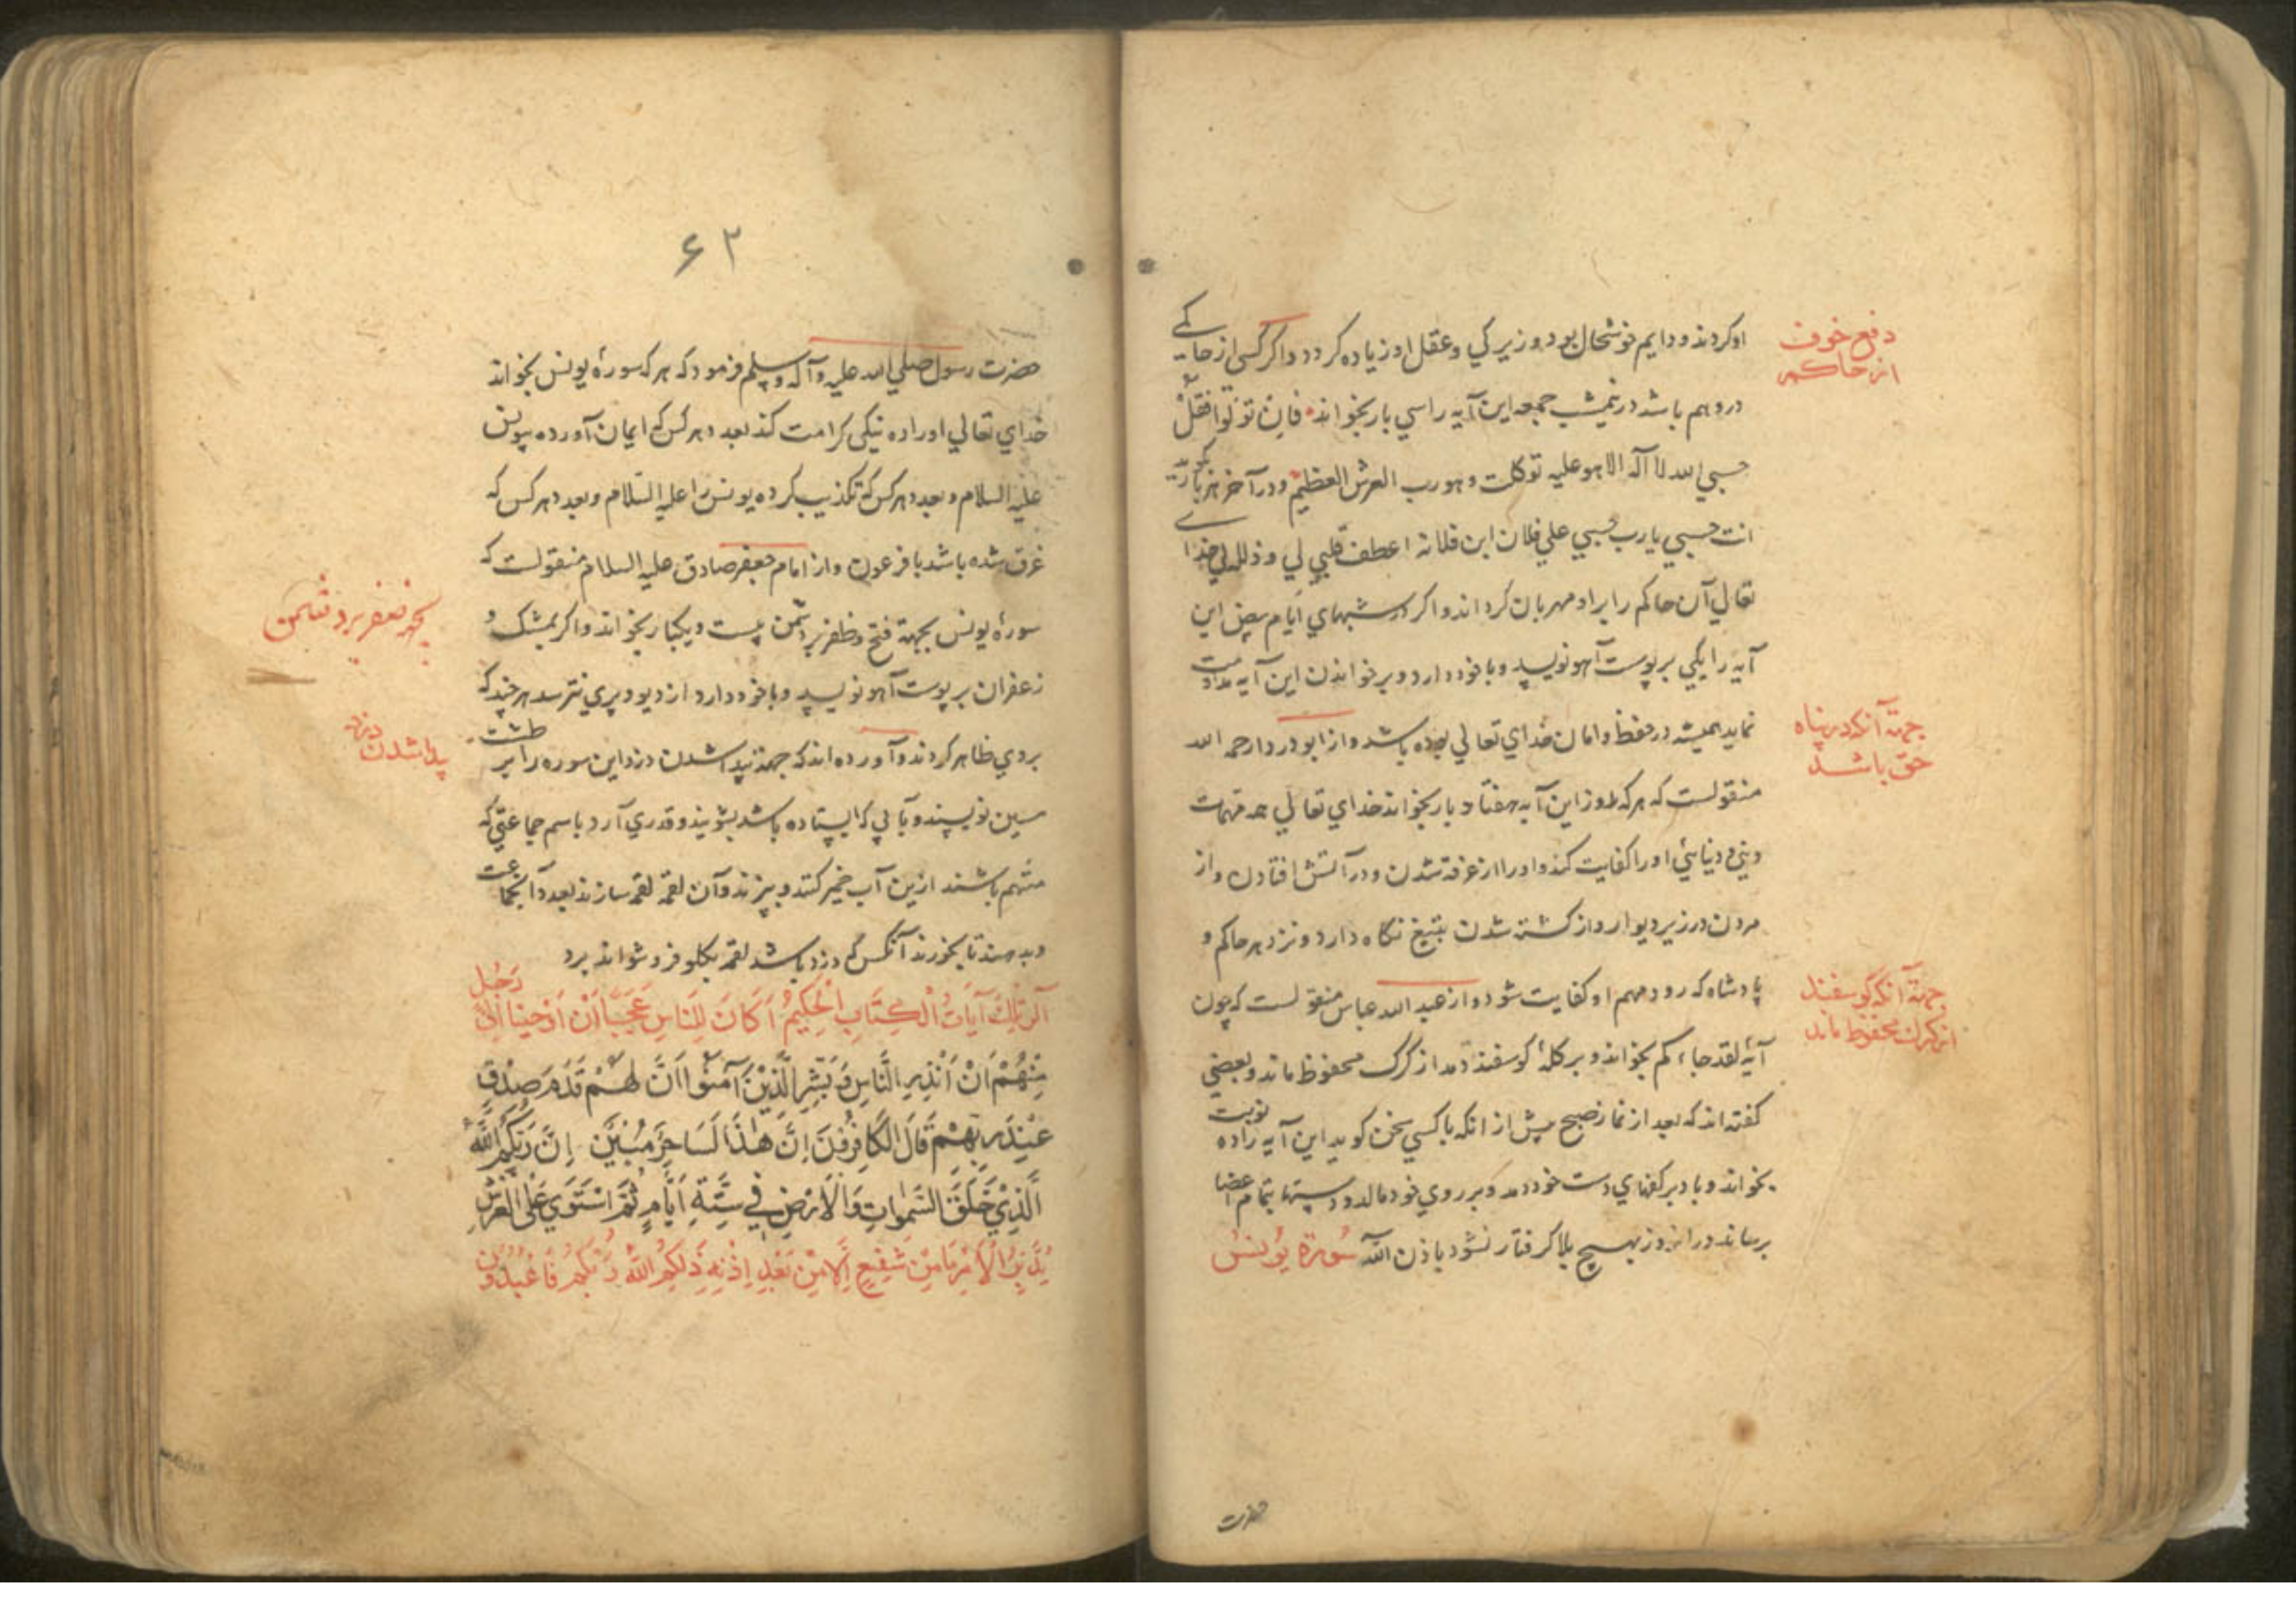 او کردند و دایم خوشحال بود و زیرکی و عقل او زیاده کردد و اکر کسی از حاکمی
در وهم باشد در نیمشب جمعه این آیه را سی بار بخواند فان تولوا فقل
حسبی الله لا اله الا هو علیه توکلت و هو رب العرش العظیم و در آخر هر بار
انت حسبی یا رب حسبی علی فلان ابن فلانه اعطف قلبی لی و ذلله لی خدای
تعالی آن حاکم را براو مهربان کرداند و اکر در شبهای ایام بیض این
آیه را یکی بر پوست آهو نویسد و با خود دارد و بر خواندن این آیه مداومت
نماید همیشه در حفظ و امان خدای تعالی بوده باشد و از ابو دردا رحمه الله
منقولست که هر که هر روز این آیه هفتاد بار بخواند خدای تعالی همه مهمات
دینی و دنیائی او را کفایت کند و او را از غرقه شدن و در آتش افتادن و از
مردن در زیر دیوار و از کشته شدن بتیغ نکاه دارد و نزد هر حاکم و
پادشاه که رود مهم او کفایت شود و از عبد الله عباس منقولست که چون
آیهٔ لقد جاءکم بخواند و بر کلهٔ کوسفند دمد از کرک محفوظ ماند و بعضی
کفته اند که بعد از نماز صبح پیش از انکه با کسی سخن کوید این آیه را ده نوبت
بخواند و باد بر کفهای دست خود دمد و بر روی خود مالد و دستها بتمام اعضا
برساند در انروز بهیچ بلا کرفتار نشود باذن الله سورة یونس
حضرت
دفع خوف
از حاکم
جهة آنکه در پناه
حق باشد
جهة آنکه کوسفند
از کرک محفوظ ماند
۶۲
حضرت رسول صلی الله علیه وآله وسلم فرمود که هر که سورهٔ یونس بخواند
خدای تعالی او را ده نیکی کرامت کند بعدد هر کس که ایمان آورده بیونس
علیه السلام و بعدد هر کس که تکذیب کرده یونس را علیه السلام و بعدد هر کس که
غرق شده باشد با فرعون و از امام جعفر صادق علیه السلام منقولست که
سورهٔ یونس بجهة فتح و ظفر بر دشمن بیست و یکبار بخواند و اکر بمشک و
زعفران بر پوست آهو نویسد و با خود دارد از دیو و پری نترسد هر چند که
بروی ظاهر کردند و آورده اند که جهة پیدا شدن دزد این سوره را بر طشت
مسین نویسند و بآبی که ایستاده باشد بشویند و قدری آرد باسم جماعتی که
متهم باشند ازین آب خمیر کنند و بپزند و آن لقمه لقمه سازند بعدد آنجماعت
و بدهند تا بخورند آنکس که دزد باشد لقمه بکلو فرو نتواند برد
الر تِلْكَ آيَاتُ الْكِتَابِ الْحَكِيمِ أَكَانَ لِلنَّاسِ عَجَبًا أَنْ أَوْحَيْنَا إِلَى رَجُلٍ
مِنْهُمْ أَنْ أَنْذِرِ النَّاسَ وَبَشِّرِ الَّذِينَ آمَنُوا أَنَّ لَهُمْ قَدَمَ صِدْقٍ
عِنْدَ رَبِّهِمْ قَالَ الْكَافِرُونَ إِنَّ هَذَا لَسَاحِرٌ مُبِينٌ إِنَّ رَبَّكُمُ اللَّهُ
الَّذِي خَلَقَ السَّمَوَاتِ وَالْأَرْضَ فِي سِتَّةِ أَيَّامٍ ثُمَّ اسْتَوَى عَلَى الْعَرْشِ
يُدَبِّرُ الْأَمْرَ مَا مِنْ شَفِيعٍ إِلَّا مِنْ بَعْدِ إِذْنِهِ ذَلِكُمُ اللَّهُ رَبُّكُمْ فَاعْبُدُوهُ
ظفر بر دشمن
پیدا شدن دزد